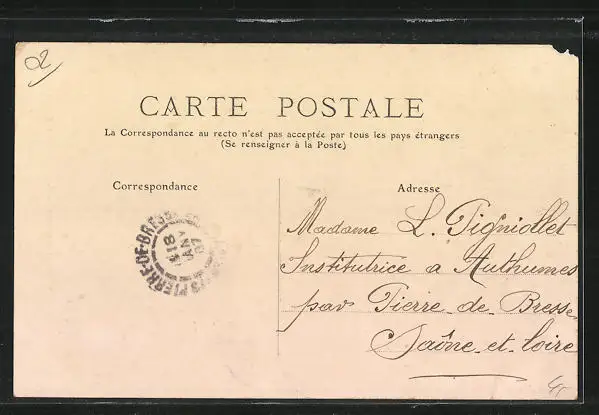 2
CARTE POSTALE
La Correspondance au recto n'est pas acceptée par tous les pays étrangers
(Se renseigner à la Poste)
Correspondance
Adresse
PIERRE-DE-BRESSE
18
Madame L. Pigniollet
Institutrice a Authumes
par Pierre-de-Bresse
Saône-et-loire